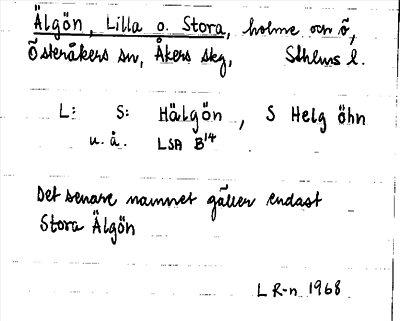 Älgön, Lilla o. Stora, holme och ö,
Österåkers sn, Åkers skg, Sthlms l.
L: S: Hälgön, S Helg öhn
u.å. LSA B¹⁴
Det senare namnet gäller endast
Stora Älgön
L R-n 1968